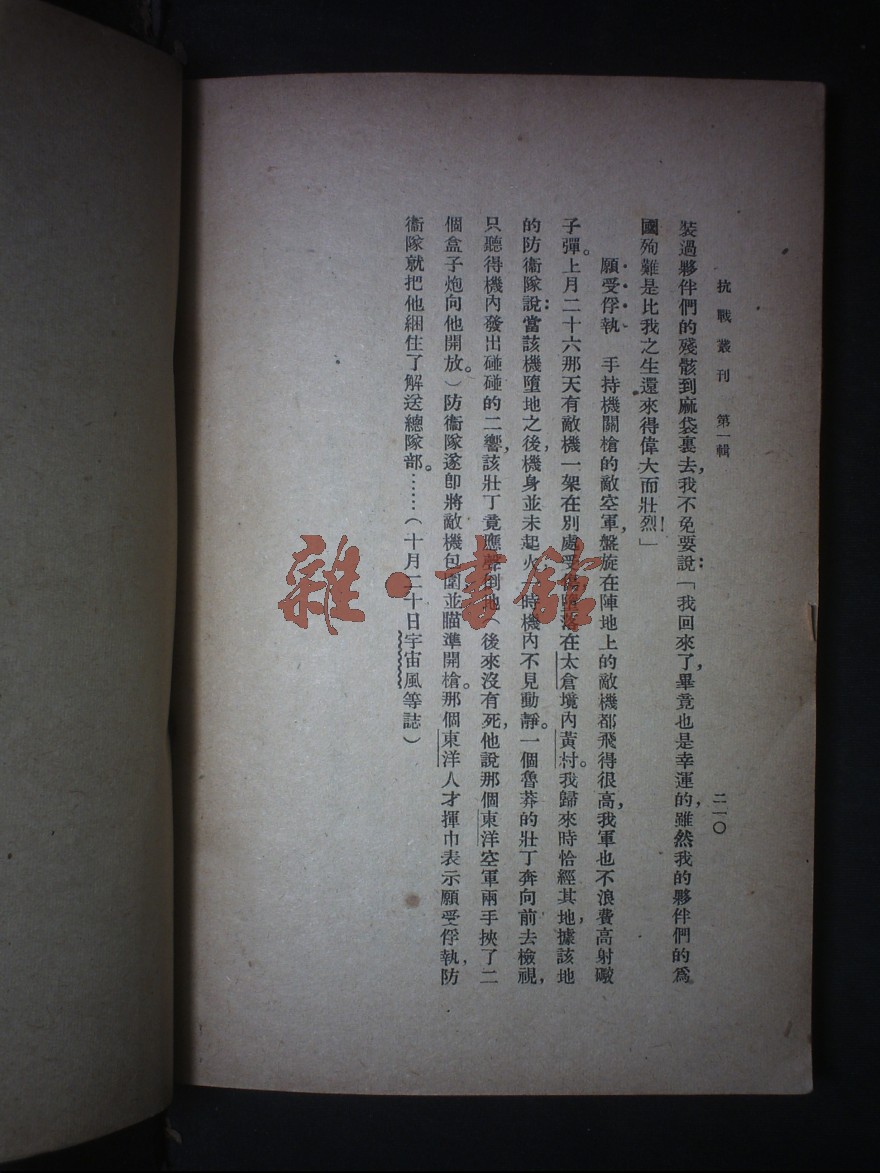 抗戰叢刊　第一輯　二一〇
裝過夥伴們的殘骸到麻袋裏去，我不免要說：「我回來了，畢竟也是幸運的，雖然我的夥伴們的爲
國殉難是比我之生還來得偉大而壯烈！」
願受俘執　手持機關槍的敵空軍，盤旋在陣地上的敵機都飛得很高，我軍也不浪費高射礮
子彈。上月二十六那天有敵機一架在別處受傷墮落在太倉境內黃村。我歸來時恰經其地，據該地
的防衞隊說：當該機墮地之後，機身並未起火，一時機內不見動靜。一個魯莽的壯丁奔向前去檢視，
只聽得機內發出碰碰的二響，該壯丁竟應聲倒地（後來沒有死，他說那個東洋空軍兩手挾了二
個盒子炮向他開放。）防衞隊遂卽將敵機包圍並瞄準開槍。那個東洋人才揮巾表示願受俘執，防
衞隊就把他綑住了解送總隊部。……（十月二十日宇宙風等誌）
雜·書館